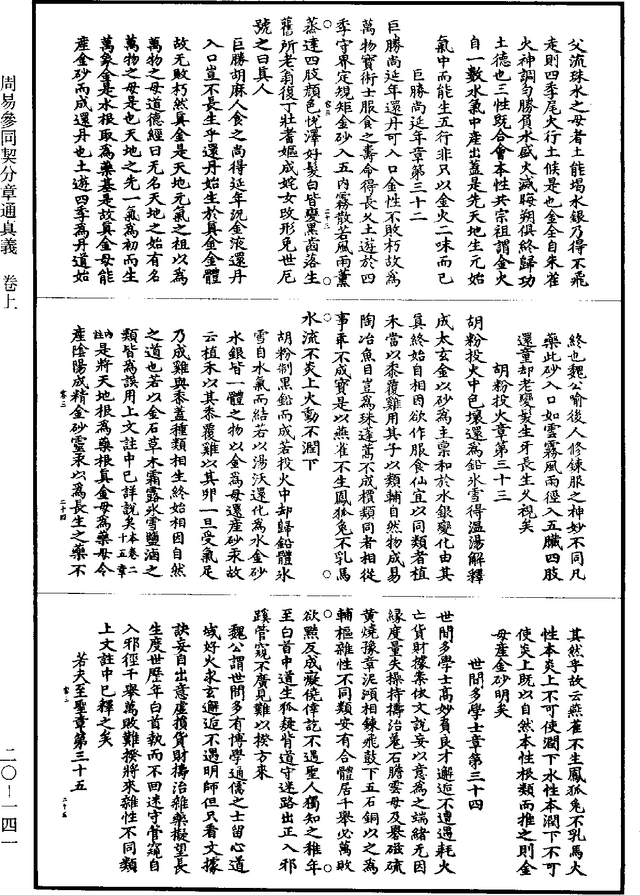 父流珠水之母者土能塌水銀乃得不飛
走則四季尾火行土候是也金全自朱雀
火神調勻勝負水盛火滅晦朔俱終歸功
土德也三性既合會本性共宗祖謂金火
自一數水氣中產出蓋是先天地生元始
氣中而能生五行非只以金火二味而已
巨勝尚延年章第三十二
巨勝尚延年還丹可入口金性不敗朽故為
萬物寶術士服食之壽命得長久土遊於四
季守界定規矩金砂入五內霧散若風雨薰
蒸達四肢顏色悅澤好髮白皆變黑齒落生
舊所老翁復丁壯耆嫗成姹女改形免世厄
號之曰真人
巨勝胡麻人食之尚得延年況金液還丹
入口豈不長生乎還丹始生於真金金體
故无敗朽然真金是天地元氣之祖以為
萬物之母道德經曰无名天地之始有名
萬物之母是也天地之先一氣為初而生
萬象金是水根取為藥基是故真金母能
產金砂而成還丹也土遊四季為丹道始
終也魏公喻後人修鍊服之神妙不同凡
藥此砂入口如雲霧風雨徑入五臟四肢
還童却老變髮生牙長生久視矣
胡粉投火章第三十三
胡粉投火中色壞還為鉛氷雪得溫湯解釋
成太玄金以砂為主稟和於水銀變化由其
真終始自相因欲作服食仙宜以同類者植
禾當以黍覆雞用其子以類輔自然物成易
陶冶魚目豈為珠蓬蒿不成檟類同者相從
事乖不成寶是以燕雀不生鳳狐兔不乳馬
水流不炎上火動不潤下
胡粉制黑鉛而成若投火中却歸鉛體氷
雪自水氣而結若以湯沃還化為水金砂
水銀皆一體之物以金為母還產砂汞故
云植禾以其黍覆雞以其卵一旦受氣足
乃成雞與黍蓋種類相生終始相因自然
之道也若以金石草木霜露氷雪鹽滷之
類皆為誤用上文註中已詳說矣本卷二十五章
內註是將天地根為藥根真金母為藥母令
產陰陽成精金砂靈汞以為長生之藥不
其然乎故云燕雀不生鳳狐兔不乳馬火
性本炎上不可使潤下水性本潤下不可
使炎上既以自然本性根類而推之則金
母產金砂明矣
世間多學士章第三十四
世間多學士高妙負良才邂逅不遭遇耗火
亡貨財據案依文說妄以意為之端緒无因
緣度量失操持擣治羌石膽雲母及礜磁硫
黃燒豫章泥澒相鍊飛鼓下五石銅以之為
輔樞雜性不同類安有合體居千舉必萬敗
欲黠反成癡僥倖訖不遇聖人獨知之稚年
至白首中道生狐疑背道守迷路出正入邪
蹊管窺不廣見難以揆方來
魏公謂世間多有博學通儒之士留心道
域好火求玄邂逅不遇明師但只看文據
訣妄自出意虛損貨財擣治雜藥擬望長
生度世歷年白首執而不回迷守管窺自
入邪徑千舉萬敗難揆將來雜性不同類
上文註中已釋之矣
若夫至聖章第三十五
周易參同契分章通真義 卷上
二〇-一四一